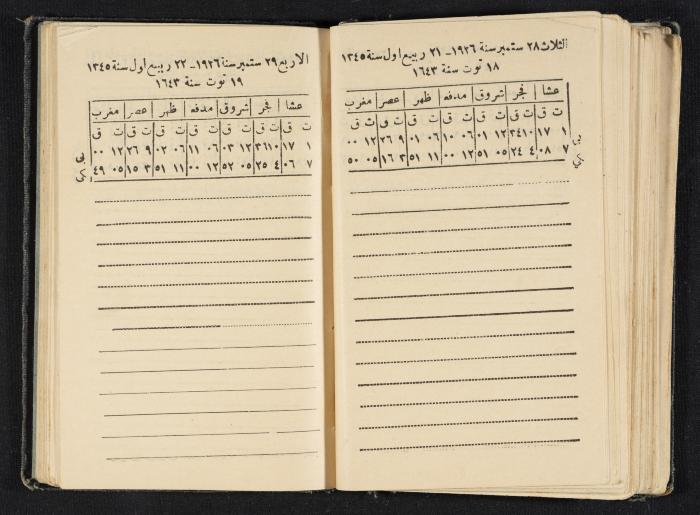 الثلاث ٢٨ ستمبر سنة ١٩٢٦ - ٢١ ربيع اول سنة ١٣٤٥
١٨ توت سنة ١٦٤٣
عشا فجر شروق مدفه ظهر عصر مغرب
ت ق ت ق ت ق ت ق ت ق ت ق ت ق
١ ١٧ ١٠ ٣٤ ١٢ ٠١ ١٢ ١٠ ٠٦ ٠١ ٩ ٢٦ ١٢ ٠٠
٧ ٠٨ ٤ ٢٤ ٠٥ ٥١ ١٢ ٠٠ ١١ ٥١ ٣ ١٦ ٠٥ ٥٠
الاربع ٢٩ ستمبر سنة ١٩٢٦ - ٢٢ ربيع اول سنة ١٣٤٥
١٩ توت سنة ١٦٤٣
عشا فجر شروق مدفه ظهر عصر مغرب
ت ق ت ق ت ق ت ق ت ق ت ق ت ق
١ ١٧ ١٠ ٣٦ ١٢ ٠٣ ٠٦ ١١ ٠٦ ٠٢ ٩ ٢٦ ١٢ ٠٠
٧ ٠٦ ٤ ٢٥ ٠٥ ٥٢ ١٢ ٠٠ ١١ ٥١ ٣ ١٥ ٠٥ ٤٩